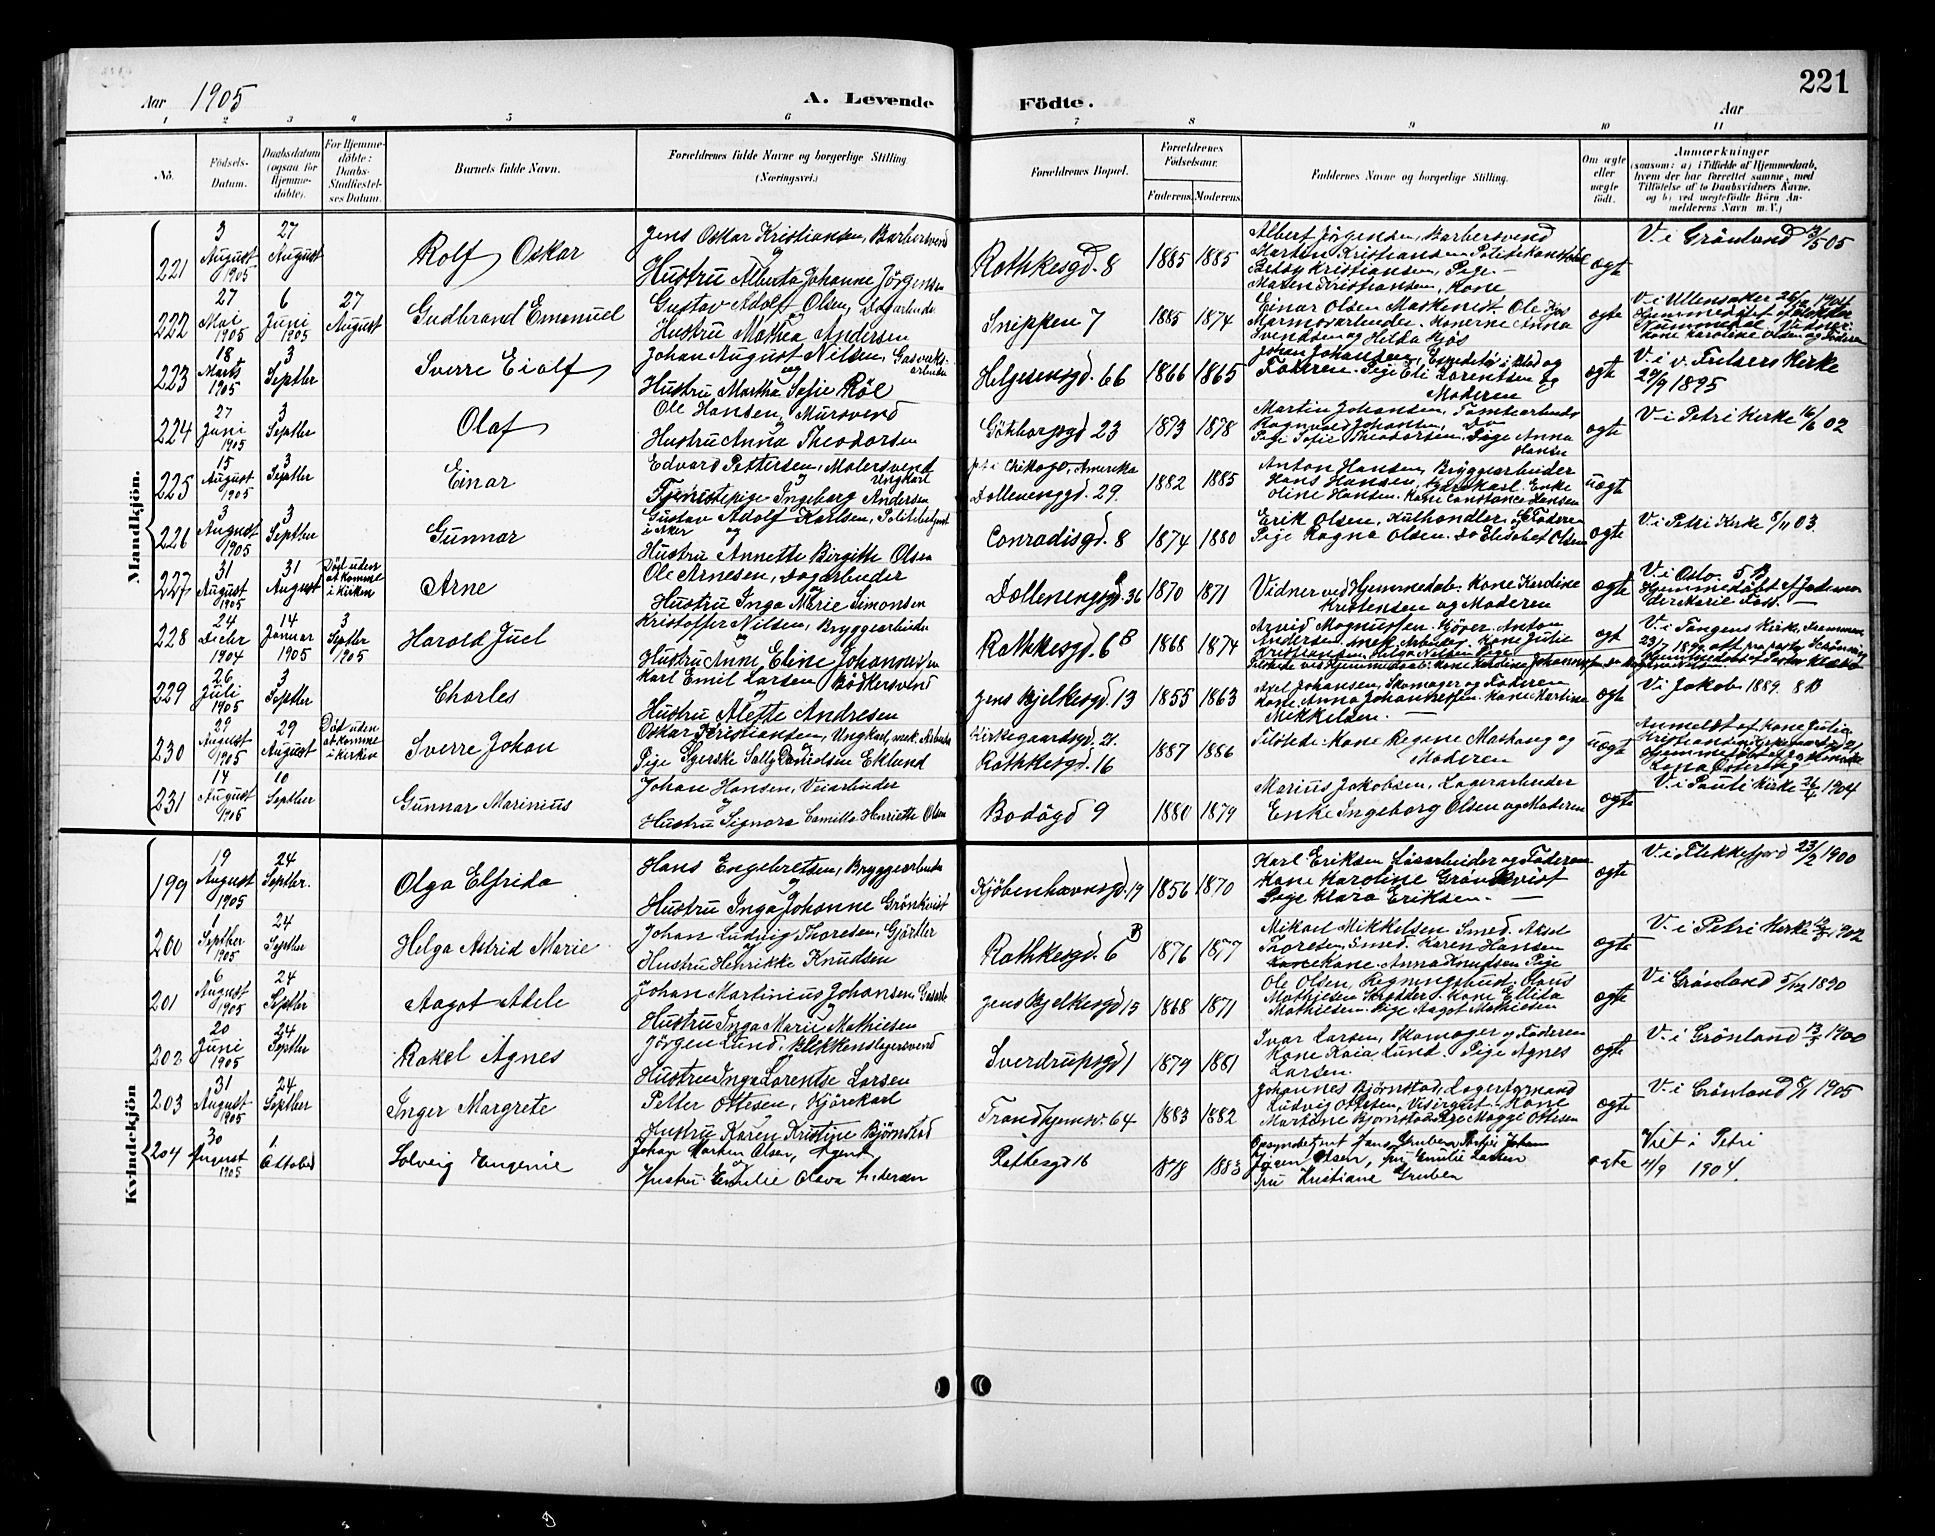 221
Aar 1905
A. Levende Födte.
Aar
1 2 3 4 5 6 7 8 9 10 11
No.
Födsels-Datum.
Daabsdatum (ogsaa for Hjemmedöbte).
For Hjemmedöbte: Daabs-Stadfæstelses Datum.
Barnets fulde Navn.
Forældrenes fulde Navne og borgerlige Stilling (Næringsvei.)
Forældrenes Bopæl.
Forældrenes Fødselsaar. Faderens. Moderens.
Faddernes Navne og borgerlige Stilling.
Om ægte eller uægte født.
Anmærkninger (saasom: a) i Tilfælde af Hjemmedaab, hvem der har forrettet samme, med Tilföielse af to Daabsvidners Navne, og b) ved uægtefödte Börn Anmelderens Navn m. V.)
Mandkjön.
221 3 August 1905 27 August Rolf Oskar Jens Oskar Kristiansen, Barbersvend og Hustru Alberta Johanne Jörgensen Rathkesgd. 8 1885 1885 Albert Jörgensen, Barbersvend Martin Kristiansen Betsy Kristiansen, Pige Kristiansen, Kone ægte V. i Grönland /5 05
222 27 Mai 1905 6 Juni 1905 27 August Gudbrand Emanuel Gustav Adolf Olsen, Dagarbeider og Hustru Mathea Andersen Snippen 7 1885 1874 Einar Olsen Maskenist. Ole Marmorarbeider. Konerne Anna Svendsen og Hilda ægte V. i Ullensaker Kone Karoline Olsen og Faderen
223 18 Marts 1905 3 Septber Sverre Eiolf Johan August Nilsen, Gasverks-arbeider og Hustru Martha Sofie Röl Helgesensgd. 66 1866 1865 Johan Johansen, Faderen. Pige Eli Lorentsen og Moderen ægte V. i v. Frelsers Kirke 29/9 1895
224 27 Juni 1905 3 Septber Olaf Ole Hansen, Mursvend og Hustru Anna Theodorsen Götborgsgd 23 1873 1878 Martin Johansen, Tomtearbeider Ragnvald Johansen, Do Pige Sofie Theodorsen. Pige Anna Hansen ægte V. i Petri Kirke 16/6 02
225 15 August 1905 3 Septber Einar Edvard Pettersen, Malersvend Ungkarl og Tjenestepige Ingeborg Andersen p.t. i Chikago, Amerika Dælenenggd. 29. 1882 1885 Anton Hansen, Bryggearbeider Hans Hansen, Enke Oline Hansen. Kone Constance Hansen uægte
226 3 August 1905 3 Septber Gunnar Gustav Adolf Karlsen, Politibetjent i Aker og Hustru Annette Birgitte Olsen Conradisgd. 8 1874 1880 Erik Olsen, Kulhandler og Faderen Pige Ragna Olsen. Do Elisabet Olsen ægte V. i Petri Kirke 8/11 03.
227 31 August 1905 31 August Död uden at komme i Kirken Arne Ole Arnesen, Dagarbeider og Hustru Inga Marie Simonsen Dælenengsgd. 36 1870 1871 Vidner ved Hjemmedaab. Kone Kerdine Kristensen og Moderen ægte V. i Oslo. Hjemmedöbt af Jordemoder Marie Foss.
228 24 Decbr 1904 14 Januar 1905 3 Septber 1905 Harald Juel Kristoffer Nilsen, Bryggearbeider og Hustru Anne Eline Johannesen Rathkesgd. 6 B 1868 1874 Arvid Magnussen. Anton Andersen Arbeider. Kone Julie Kristiansen. Helga Nielsen Pige ægt V. i Tangens Kirke, Drammen
229 26 Juli 1905 3 Septber Charles Karl Emil Larsen, Bödkersvend og Hustru Alette Andresen Jens Bjelkesgd. 13 1855 1863 Axel Johansen, Skomager og Faderen Kone Anna Johannessen. Kone Martine Mikkelsen. ægte V. i Jakob 1889.
230 29 August 1905 29 August Död uden at komme i Kirken Sverre Johan Oskar Kristiansen, Ungkarl, mek. Arbeider og Pige Sally Danielsen Eklund Kirkegaardsgd. 21. Rathkesgd. 16 1887 1886 Tilstede. Kone Regine og Moderen uægte Anmeldt af Kone Julia Kristiansen
231 14 August 1905 10 Septber Gunnar Marinius Johan Hansen, Veiarbeider og Hustru Signora Camilla Henriette Olsen Bodögd 9 1880 1879 Marius Jakobsen, Lagerarbeider Enke Ingeborg Olsen og Moderen ægte V. i Pauli Kirke 1904
Kvindekjön
199 19 August 1905 24 Septber. Olga Elfrida Hans Engebretsen, Bryggearbeider og Hustru Inga Johanne Grönkvist Kjöbenhavnsgd. 19 1856 1870 Karl Eriksen Lösarbeider og Faderen Kone Karoline Grönkvist Pige Klara Eriksen. ægte V. i Flekkefjord 23/2 1900
200 1 Septber 1905 24 Septbr Helga Astrid Marie Johan Ludvig Thoresen, Gjörtler og Hustru Henrikke Knudsen Rathkesgd. 6 B 1876 1877 Mikael Mikkelsen Smed. Axel Thoresen, Smed. Karen Hansen Kone. Anna Knudsen Pige ægte V. i Petri Kirke 1902
201 6 August 1905 24 Septbr Aagot Adele Johan Martinius Johansen og Hustru Inga Marie Mathiesen Jens Bjelkesgd 15 1868 1871 Ole Olsen, Olaus Mathiesen Skrædder. Kone Ellida Mathiesen. Pige Aagot Mathiesen ægte V. i Grönland 5/12 1890
202 20 Juni 1905 24 Septber Rakel Agnes Jörgen Lund, Blikkenslagersvend og Hustru Inga Lorentse Larsen Sverdrupsgd 1 1879 1881 Ivar Larsen, Skomager og Faderen Kone Kaia Lund. Pige Agnes Larsen. ægte V. i Grönland 1900
203 31 August 1905 24 Septber Inger Margrete Petter Ottesen, Kjörekarl og Hustru Karen Kristine Björnstad Trondhjemsv. 64 1883 1882 Johannes Björnstad, Lagerformand Ludvig Ottesen, Visergut. Kone Martine Björnstad. Pige Magge Ottesen ægte V. i Grönland 8/1 1905
204 30 August 1905 1. Oktober Solveig Eugenie Johan Morten Olsen, Agent og Hustru Emilie Olava Andersen Rathkesgd 16 1878 1883 Jens Gruben, Johan Jörgen Olsen, Fru Emilie Larsen Fru Kristiane Gruben ægte Viet i Petri 4/9 1904.